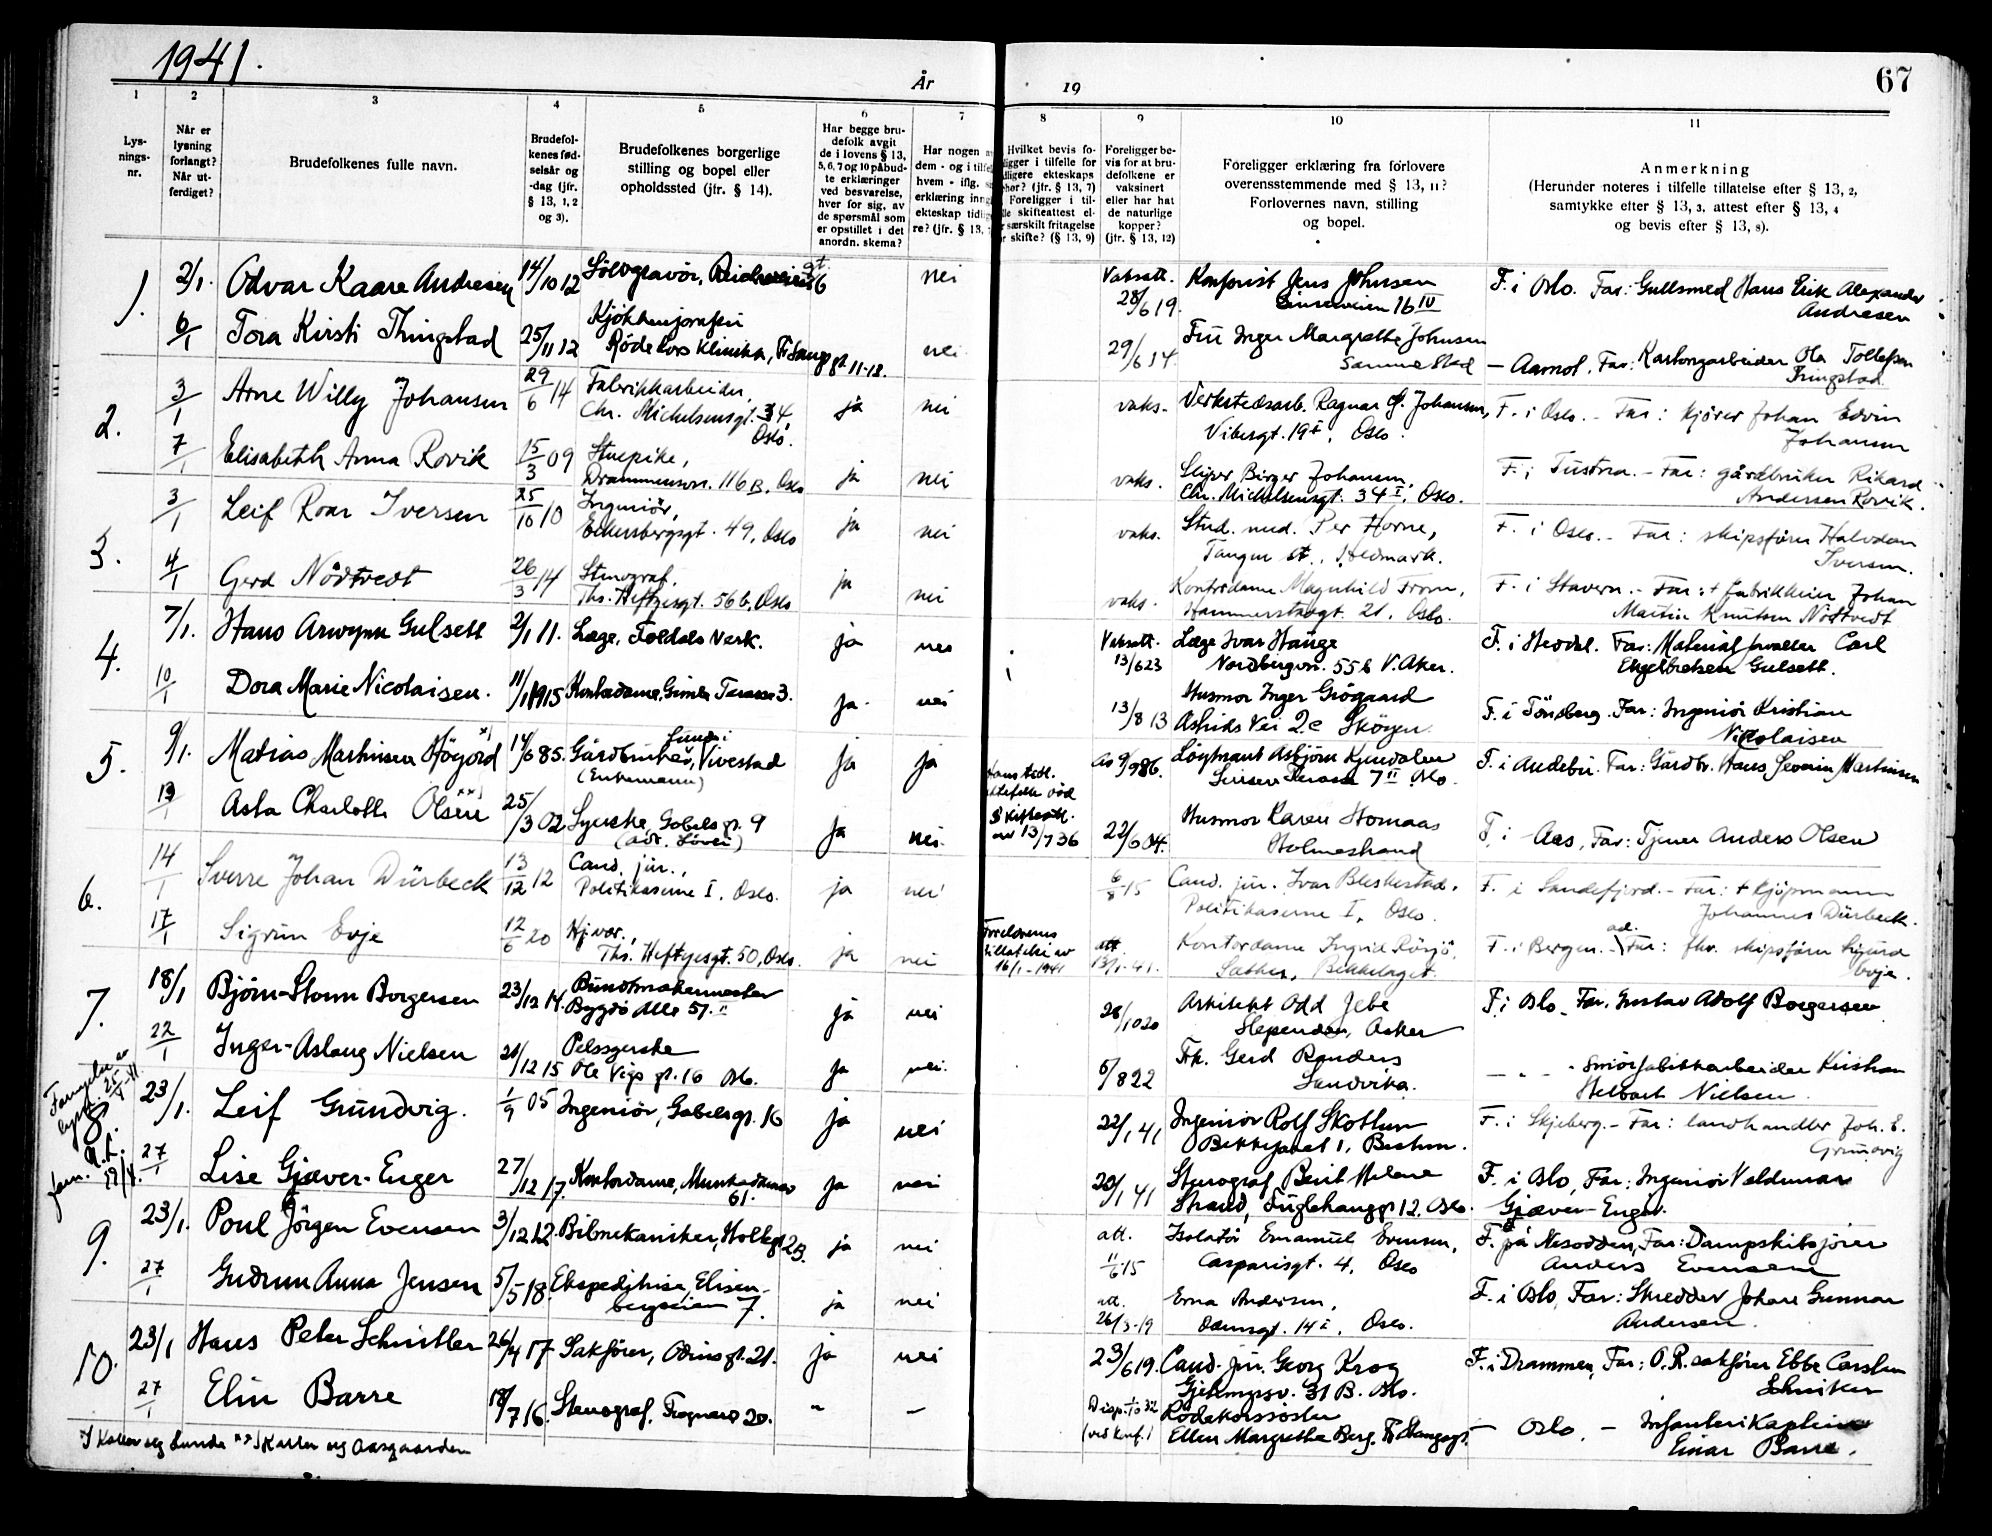 1941.
År
19
67
1
2
3
4
5
6
7
8
9
10
11
Lys-
nings-
nr.
Når er
lysning
forlangt?
Når ut-
ferdiget?
Brudefolkenes fulle navn.
Brudefol-
kenes fød-
selsår og
-dag (jfr.
§ 13, 1, 2
og 3).
Brudefolkenes borgerlige
stilling og bopel eller
opholdssted (jfr. § 14).
Har begge bru-
defolk avgit
de i lovens § 13,
5, 6, 7 og 10 påbud-
te erklæringer
ved besvarelse,
hver for sig, av
de spørsmål som
er opstillet i det
anordn. skema?
Har nogen a
dem - og i tilfel
hvem - iflg.
erklæring inng
ekteskap tidlig
re? (jfr. § 13,
Hvilket bevis fo-
ligger i tilfelle for
dligere ekteskaps
phør? (jfr. § 13, 7)
Foreligger i til-
lle skifteattest el-
r særskilt fritagelse
r skifte? (§ 13, 9)
Foreligger be-
vis for at bru-
defolkene er
vaksinert
eller har hat
de naturlige
kopper?
(jfr. § 13, 12)
Foreligger erklæring fra forlovere
overensstemmende med § 13, 11?
Forlovernes navn, stilling
og bopel.
Anmerkning
(Herunder noteres i tilfelle tillatelse efter § 13, 2,
samtykke efter § 13, 3, attest efter § 13, 4
og bevis efter § 13, 8).
1. 2/1. Odvar Kaare Andresen 14/10 12 Sølvgravør, 6 nei Vaksatt. 28/6 19. Jens Johnsen 16 IV F. i Oslo. Far: Gullsmed Hans Erik Alexander
Andresen
6/1 Tora Kirsti Thingstad 25/11 12 Røde Kors Klinikk, gt 11-18. nei 29/6 14 Fru Inger Margrethe Johnsen
Samme sted — Aarnol. Far: Ole Tollefsen
Thingstad.
2. 3/1 Arne Willy Johansen 29/6 14 Fabrikkarbeider,
Chr. Michelsensgt. 34,
Oslo. ja nei vaks. Verkstedsarb. Ragnar G. Johansen,
Vibesgt. 19 I, Oslo. F. i Oslo. - Far: kjører Johan Edvin
Johansen
7/1 Elisabeth Anna Rovik 15/3 09 Stuepike,
Drammensvn. 116 B. Oslo ja nei vaks. Birger Johansen,
Chr. Michelsensgt. 34 I, Oslo. F. i Tustna. - Far: gårdbruker Rikard
Andersen Rovik.
3. 3/1 Leif Roar Iversen 25/10 10 Ingeniør,
Eckersbergsgt. 49, Oslo ja nei vaks. Stud. med. Per Horne,
Tangen st., Hedmark. F. i Oslo. - Far: skipsfører Halvdan
Iversen.
4/1 Gerd Nødtvedt 26/3 14 Stenograf,
Ths. Heftyesgt. 56 b, Oslo ja nei vaks. Kontordame Magnhild From,
Hammerstadgt. 21, Oslo. F. i Stavern. - Far: + fabrikkeier Johan
Martin Knutsen Nødtvedt
4. 7/1. Hans Arwynn Gulsett 2/1 11. Læge, Foldals Verk. ja nei Vaksatt. 13/6 23 Læge Ivar Hauge
Nordbergvn. 55 b V. Aker. F. i Heddal. Far: Materialforvalter Carl
Engelbretsen Gulsett.
10/1 Dora Marie Nicolaisen. 11/1 1915 Kontordame, Gimle Terasse 3. ja. nei 13/8 13 Husmor Inger Grøgaard
Astrids Vei 2c Skøyen. F. i Tönsberg. Far: Ingeniør Kristian
Nicolaisen
5. 9/1. Matias Martinsen Høgjord x) 14/6 85. Gårdbruker, Vivestad
(Enkemann) ja ja av 13/7 36 9/9 86. Løytnant Asbjørn Kjendalen
Sinsen Terasse 7 II Oslo. F. i Andebu. Far: Gårdbr. Hans Severin Martinsen
13/1 Asta Charlotte Olsen xx) 25/3 02 Syerske, Gabels gt. 9
ja nei. 22/6 04. Husmor Karen Homaas
Holmestrand F. i Aas, Far: Tjener Anders Olsen
6. 14/1 Sverre Johan Dürbeck 13/12 12 Cand. jur.,
Politikaserne I, Oslo. ja nei 6/8 15 Cand. jur. Ivar Bleskestad,
Politikaserne I, Oslo. F. i Sandefjord. - Far: + kjøpmann
Johannes Dürbeck.
17/1 Sigrun Evje 12/6 20 Hj.vær.,
Ths. Heftyesgt. 50, Oslo. ja nei Foreldrenes
tillatelse av
16/1 - 1941 att. 13/1-41. Kontordame Ingrid
Sæther, Bekkelaget. F. i Bergen. - ad. Far: fhv. skipsfører Sigurd
Evje.
7. 18/1 Bjørn-Storm Borgersen 23/12 14. Buntmakermester
Bygdö Alle 51. II ja nei 28/10 20 Arkitekt Odd Jebe
Slependen, Asker F. i Oslo. Far. Gustav Adolf Borgersen
22/1 Inger-Aslaug Nielsen 21/12 15 Pelssyerske
Ole Vigs gt. 16 Oslo. ja nei. 5/8 22 Frk. Gerd Randers
Sandvika. — „ - Smørfabrikkarbeider Kristian
Helbart Nielsen.
23/1. Leif Grundvig. 1/9 05 Ingeniör, Gabelsgt. 16 ja nei 22/1 41 Ingeniør Rolf Skotlun
1, F. i Skjeberg. - Far: landhandler Joh. E.
Grundvig
27/1 Lise Gjæver-Enger 27/12 17. Kontordame, Munkedamsv
61. ja nei 20/1 41 Stenograf Berit Helene
Strand, Fuglehauggt 12. Oslo. F. i Oslo, Far: Ingeniør Valdemar
Gjæver-Enger.
9. 23/1. Poul Jörgen Evensen 3/12 12. Bilmekaniker, Holtegt 2 B. ja nei att. 11/6 15 Isolatør Emanuel Evensen,
Casparisgt. 4, Oslo F. på Nesodden, Far: Dampskibsfører
Anders Evensen
27/1 Gudrun Anna Jensen 5/5-18. Ekspeditrise, Elisen-
bergveien 7. ja nei att. 26/3-19 Erna Andersen,
Odinsgt. 14 I, Oslo. F. i Oslo, Far: Skredder Johan Gunnar
Andersen.
10. 23/1 Hans Peter Schnitler 26/4 17 Sakfører, Odins gt. 21. ja nei 23/6 19. Cand. jur. Georg Krog
31 B. Oslo. F. i Drammen, Far: O.R. sakfører Ebbe Carsten
Schnitler
27/1 Elin Barre 18/7 16. Stenograf, Frognerv 20. " — Disp. 1/10 32
Rødekorssöster
Ellen Margrethe Berg. — Oslo. — Infanterikaptein
Einar Barre.
x) Kaller seg Lunde xx) Kaller seg Aasgaarden